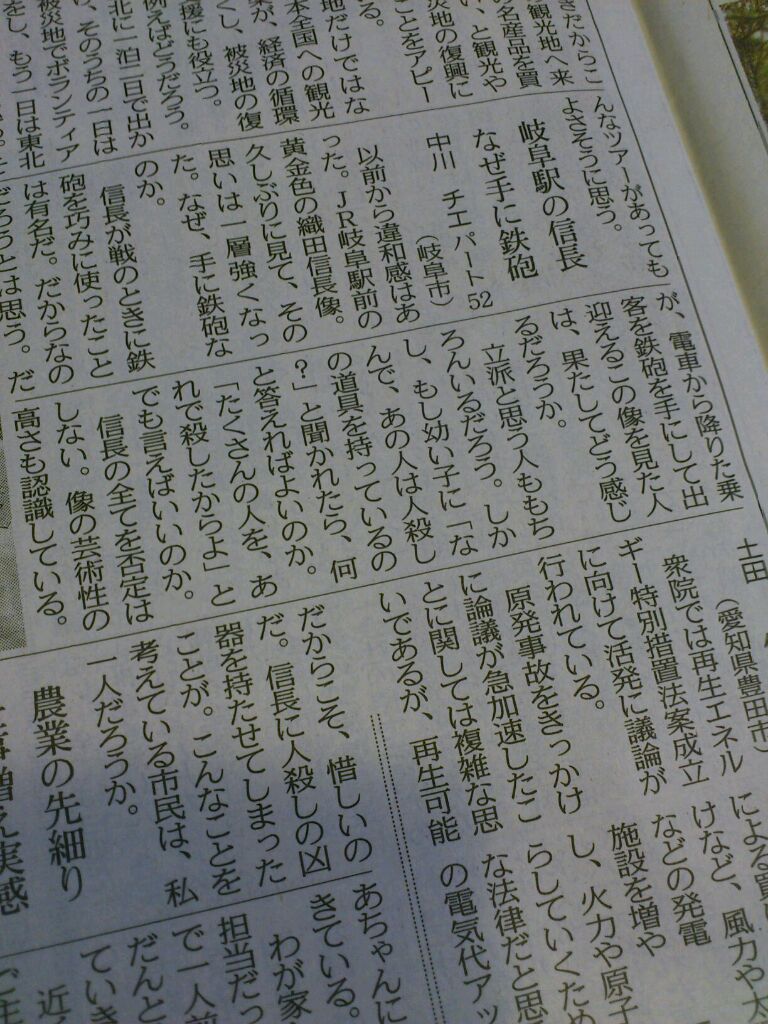 きたからこ
観光地へ来
の名産品を買
い、と観光や
災地の復興に
ことをアピー
る。
地だけではな
本全国への観光
が、経済の循環
くし、被災地の復
援にも役立つ。
例えばどうだろう。
北に一泊二日で出か
、そのうちの一日は
被災地でボランティア
をし、もう一日は東北
んなツアーがあっても
よさそうに思う。
岐阜駅の信長
なぜ手に鉄砲
中川 チエ パート 52
(岐阜市)
以前から違和感はあ
った。JR岐阜駅前の
黄金色の織田信長像。
久しぶりに見て、その
思いは一層強くなっ
た。なぜ、手に鉄砲な
のか。
信長が戦のときに鉄
砲を巧みに使ったこと
は有名だ。だからなの
だろうとは思う。だ
が、電車から降りた乗
客を鉄砲を手にして出
迎えるこの像を見た人
は、果たしてどう感じ
るだろうか。
立派と思う人ももち
ろんいるだろう。しか
し、もし幼い子に「な
んで、あの人は人殺し
の道具を持っているの
?」と聞かれたら、何
と答えればよいのか。
「たくさんの人を、あ
れで殺したからよ」と
でも言えばいいのか。
信長の全てを否定は
しない。像の芸術性の
高さも認識している。
だからこそ、惜しいの
だ。信長に人殺しの凶
器を持たせてしまった
ことが。こんなことを
考えている市民は、私
一人だろうか。
土田
(愛知県豊田市)
衆院では再生エネル
ギー特別措置法案成立
に向けて活発に議論が
行われている。
原発事故をきっかけ
に論議が急加速したこ
とに関しては複雑な思
いであるが、再生可能
による買
けなど、風力や太
などの発電
施設を増や
し、火力や原子
らしていくため
な法律だと思
の電気代アッ
農業の先細り
増え実感
あちゃんに
きている。
わが家
担当だっ
で一人前
だんと
ていき
近く